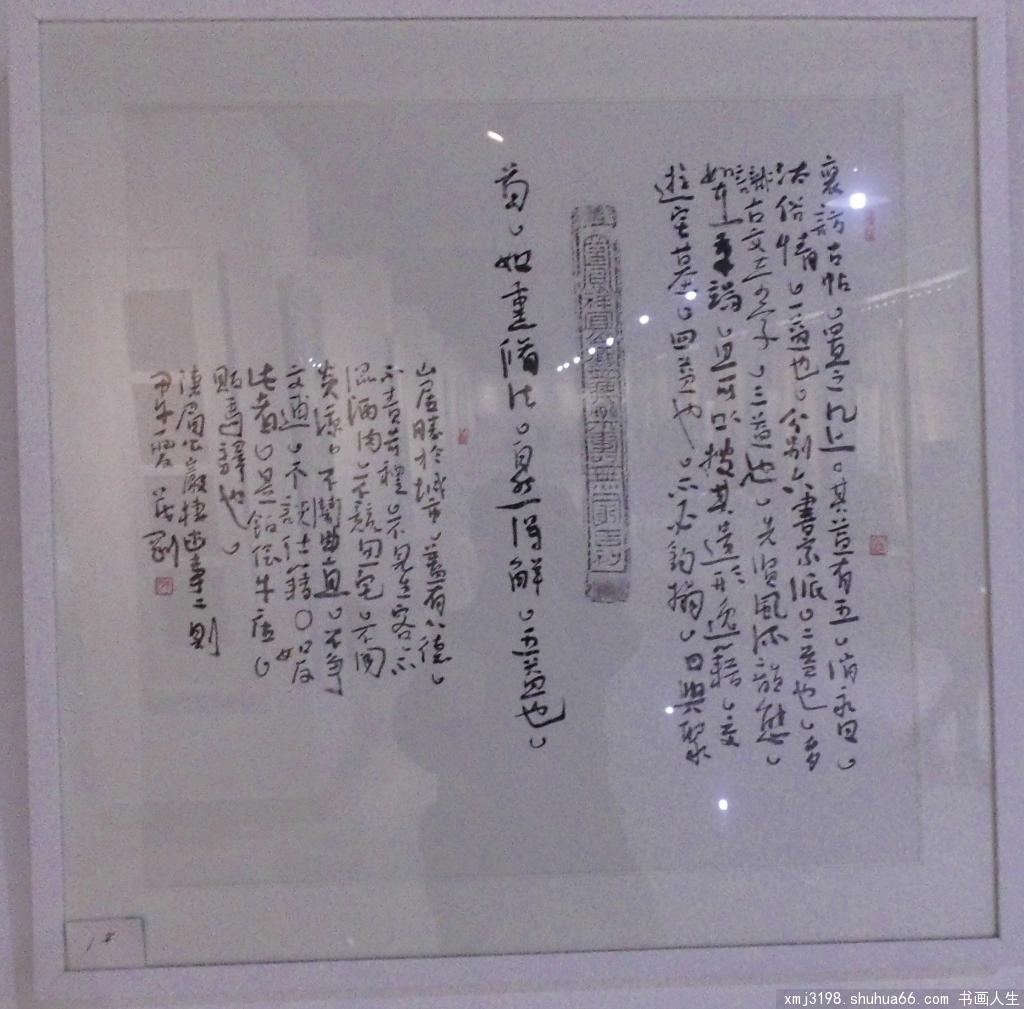 裒訪古帖置之几上其益有五消永日
汰俗情一益也分别六書宗派二益也多
識古文奇字三益也先賢風流韻態
如在筆端且可以搜其遺形逸籍交
遊宅墓四益也不必鈎搨日與聚
首如熏脩法自然得解五益也
山居勝於城市蓋有八德
不責苛禮不見生客不
混酒肉不競田宅不問
炎涼不鬧曲直不爭
文逋不談仕籍〇如反
此者是飯儈牛店
販馬驛也
陳眉公巖棲幽事二則
甲午
xmj3198.shuhua66.com 书画人生